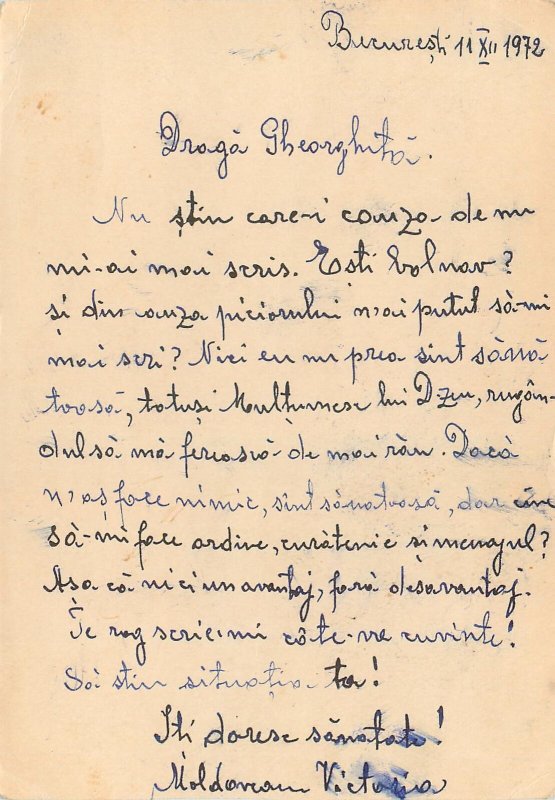 București 11 XII 1972
Dragă Gheorghită.
Nu știu care-i cauza de nu
mi-ai mai scris. Ești bolnav?
și din cauza piciorului n'ai putut să-mi
mai scri? Nici eu nu prea sint sănă
toasă, totuși Multumesc lui Dzeu, rugân-
dulsă mă ferească de mai rău. Dacă
n'aș face nimic, sint sănatoasă, dar cine
să-mi face ordine, curătenie și menajul?
Așa că nici un avantaj, fară desavantaj.
Te rog scrie-mi câ-te-va cuvinte!
Să stiu situația ta!
Iti doresc sănatate!
Moldovean Victoria